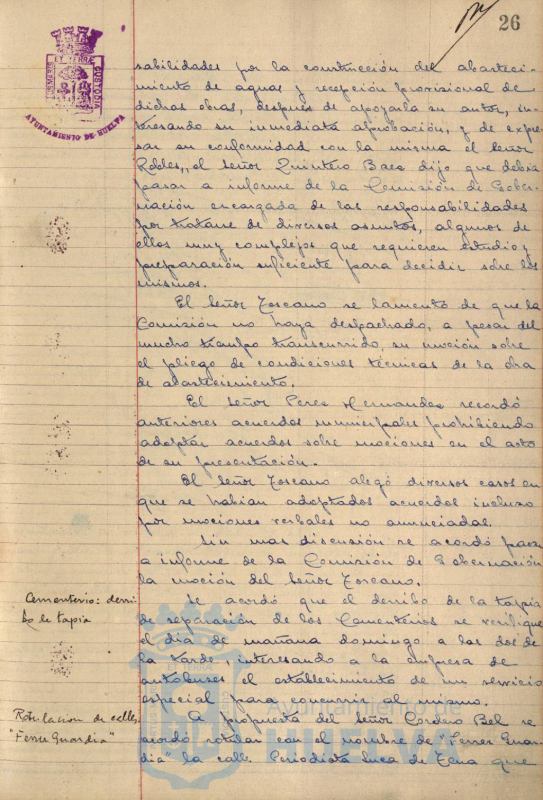 26
AYUNTAMIENTO DE HUELVA
sabilidades por la construcción del abasteci-
miento de aguas y recepción provisional de
dichas obras, despues de apoyarla su autor, in-
teresando su inmediata aprobación, y de expre-
sar su conformidad con la misma el señor
Robles, el señor Quintero Baez dijo que debia
pasar a informe de la Comisión de Gober-
nación encargada de las responsabilidades
por tratarse de diversos asuntos, algunos de
ellos muy complejos que requieren estudio y
preparación suficiente para decidir sobre los
mismos.
El señor Toscano se lamento de que la
Comisión no haya despachado, a pesar del
mucho tiempo transcurrido, su moción sobre
el pliego de condiciones técnicas de la obra
de abastecimiento.
El señor Perez Hernandez recordó
anteriores acuerdos municipales prohibiendo
adoptar acuerdos sobre mociones en el acto
de su presentación.
El señor Toscano alegó diversos casos en
que se habian adoptados acuerdos incluso
por mociones verbales no anunciadas.
Sin mas discusión se acordó pasar
a informe de la Comisión de Gobernación
la moción del señor Toscano.
Cementerio: derri-
bo de tapia
Se acordó que el derribo de la tapia
de separación de los Cementerios se verifique
el dia de mañana domingo a las dos de
la tarde, interesando a la empresa de
autobuses el establecimiento de un servicio
especial para concurrir al mismo.
Rotulacion de calles
"Ferrer Guardia"
A propuesta del señor Cordero Bel se
acordó rotular con el nombre de "Ferrer Guar-
dia" la calle Periodista Luca de Tena que
Ayuntamiento de
HUELVA